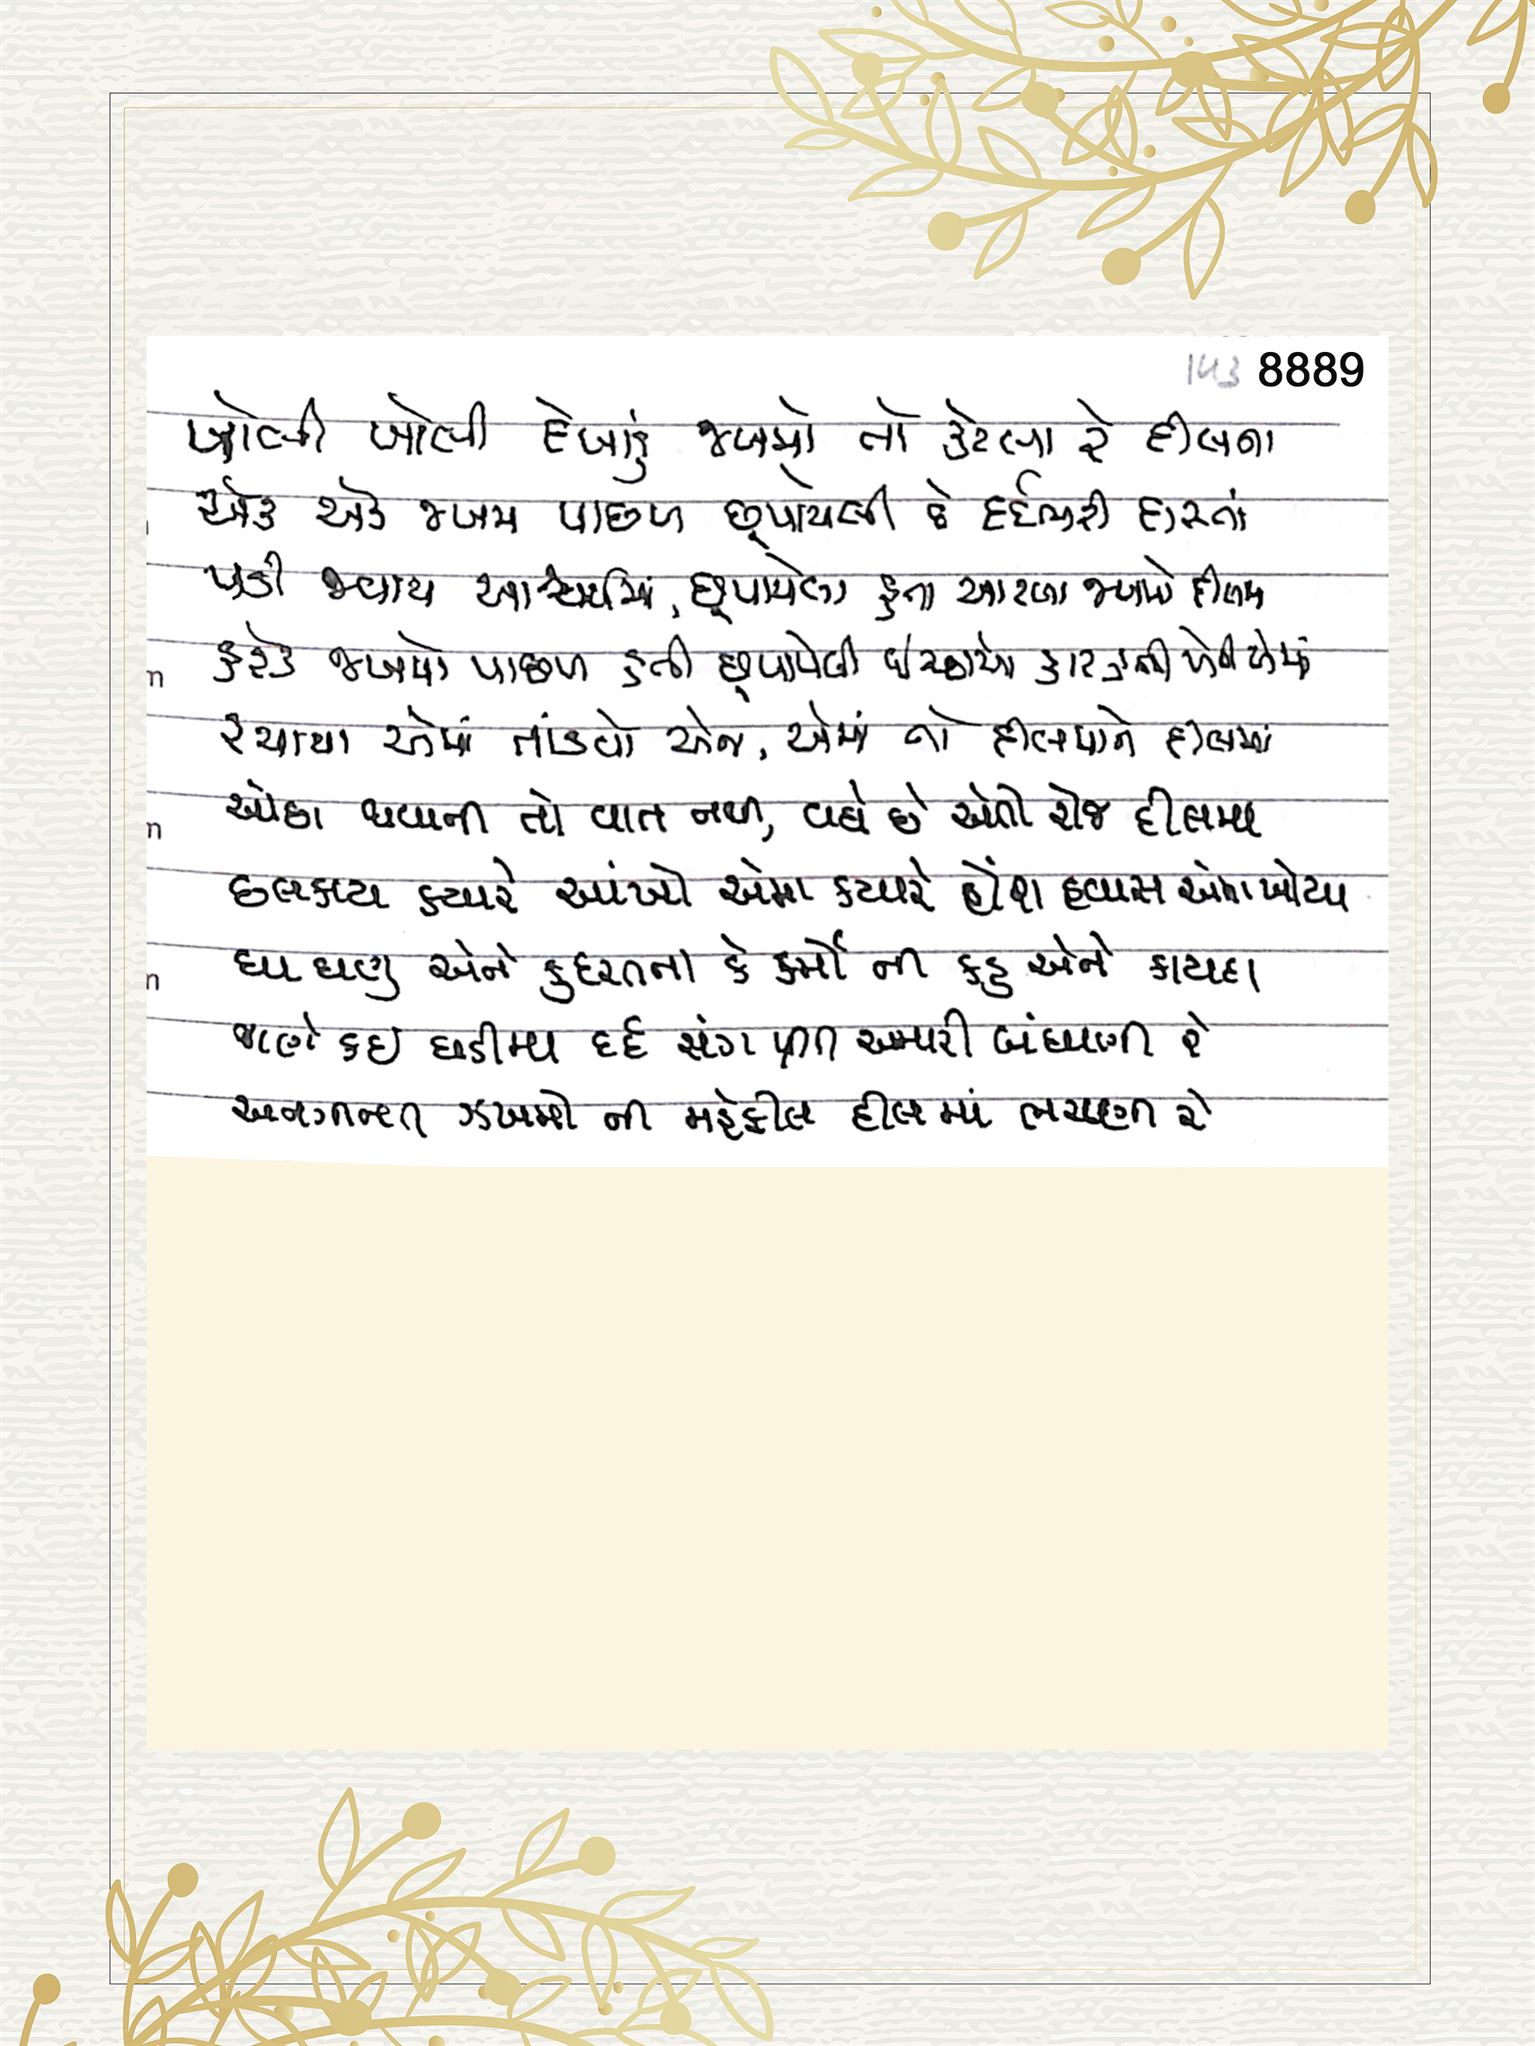 ૧૫૩ 8889
ખોલી ખોલી દેખાડું જખમો તો કેટલા રે દીલના
એક એક જખમ પાછળ છૂપાયેલી છે દર્દભરી દાસ્તાં
પડી જવાય આશ્ચર્યમાં, છૂપાયેલા હતા આટલા જખમો દીલમાં
હરેક જખમો પાછળ હતી છૂપાયેલી ઇચ્છાઓ
રચાયા એમાં તાંડવો એના, એમાં તો દીલમાંને દીલમાં
ઓછા થવાની તો વાત નથી, વધે છે એતો રોજ દીલમા
છલકાય ક્યારે આંખો એમા ક્યારે હોંશ હવાસ એમા ખોટા
ઘા ઘણુ એને કુદરતના કે કર્મો ની કહુ એને કાયદા
જાણે કઇ ઘડીમા દર્દ સંગ પ્રીત અમારી બંધાણી રે
અનગીનત ઝખમો ની મહેફીલ દીલમાં ભરાણી રે